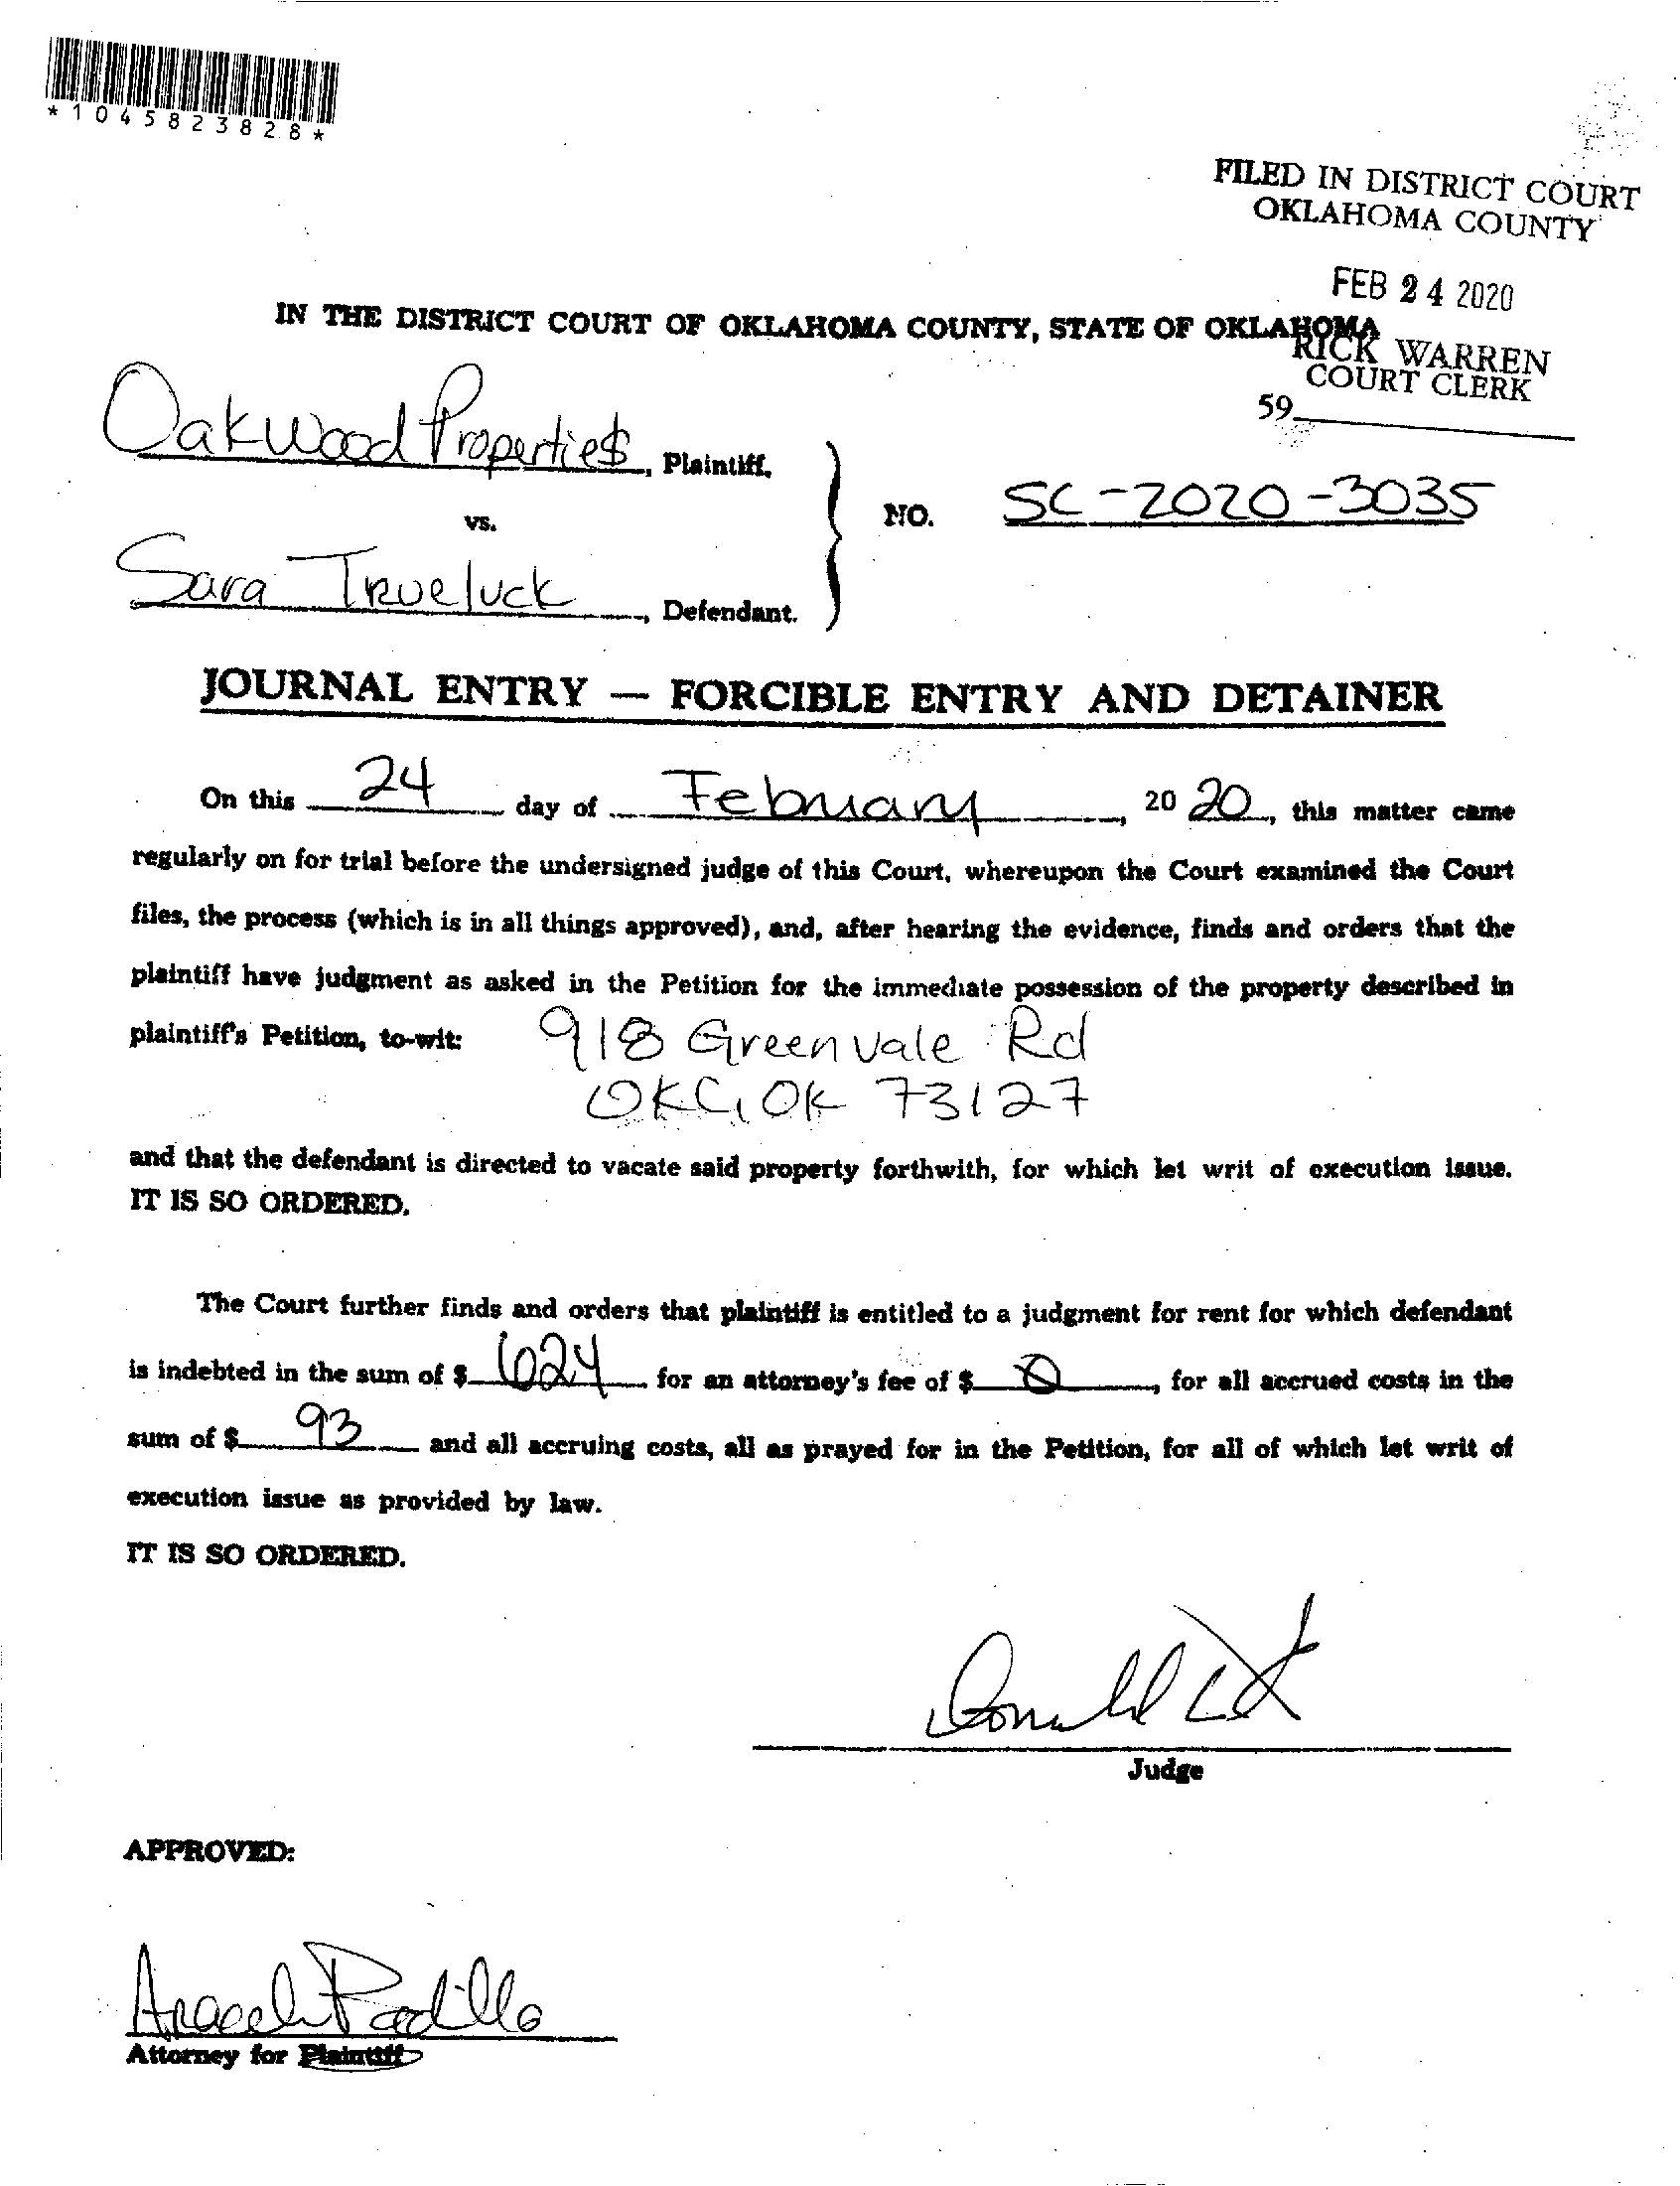 *1045823828*
FILED IN DISTRICT COURT
OKLAHOMA COUNTY
FEB 24 2020
IN THE DISTRICT COURT OF OKLAHOMA COUNTY, STATE OF OKLAHOMA
RICK WARREN
COURT CLERK
59
Oakwood Properties, Plaintiff,
vs.
NO. SC-2020-3035
Sara Trueluck, Defendant.
JOURNAL ENTRY — FORCIBLE ENTRY AND DETAINER
On this 24 day of February, 20 20, this matter came
regularly on for trial before the undersigned judge of this Court, whereupon the Court examined the Court
files, the process (which is in all things approved), and, after hearing the evidence, finds and orders that the
plaintiff have judgment as asked in the Petition for the immediate possession of the property described in
plaintiff's Petition, to-wit: 918 Greenvale Rd
OKC, OK 73127
and that the defendant is directed to vacate said property forthwith, for which let writ of execution issue.
IT IS SO ORDERED.
The Court further finds and orders that plaintiff is entitled to a judgment for rent for which defendant
is indebted in the sum of $ 624 for an attorney's fee of $ 0, for all accrued costs in the
sum of $ 93 and all accruing costs, all as prayed for in the Petition, for all of which let writ of
execution issue as provided by law.
IT IS SO ORDERED.
Judge
APPROVED:
Araceli Padilla
Attorney for Plaintiff